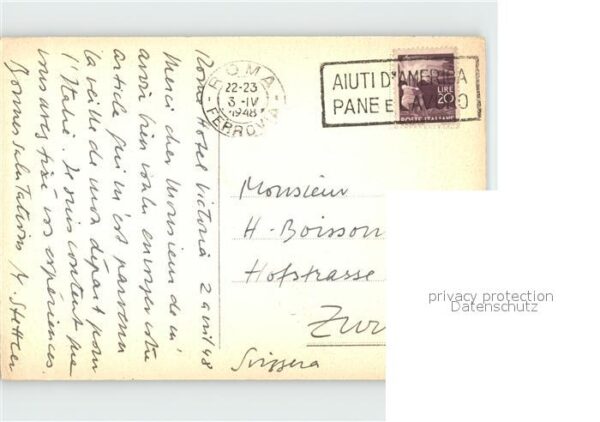 Rome Hotel Victoria 2 avril 48
Merci cher Monsieur de m'
avoir bien voulu envoyer votre
article qui m'est parvenu
la veille de mon départ pour
l'Italie. Je suis content que
vous avez fixé vos expériences.
Bonnes salutations
ROMA
FERROVIA
22-23
3-IV
1948
AIUTI D'AMERICA
PANE E LAVORO
LIRE
20
POSTE ITALIANE
Monsieur
H-Boisson
Hofstrasse
Zur
Svizzera
privacy protection
Datenschutz